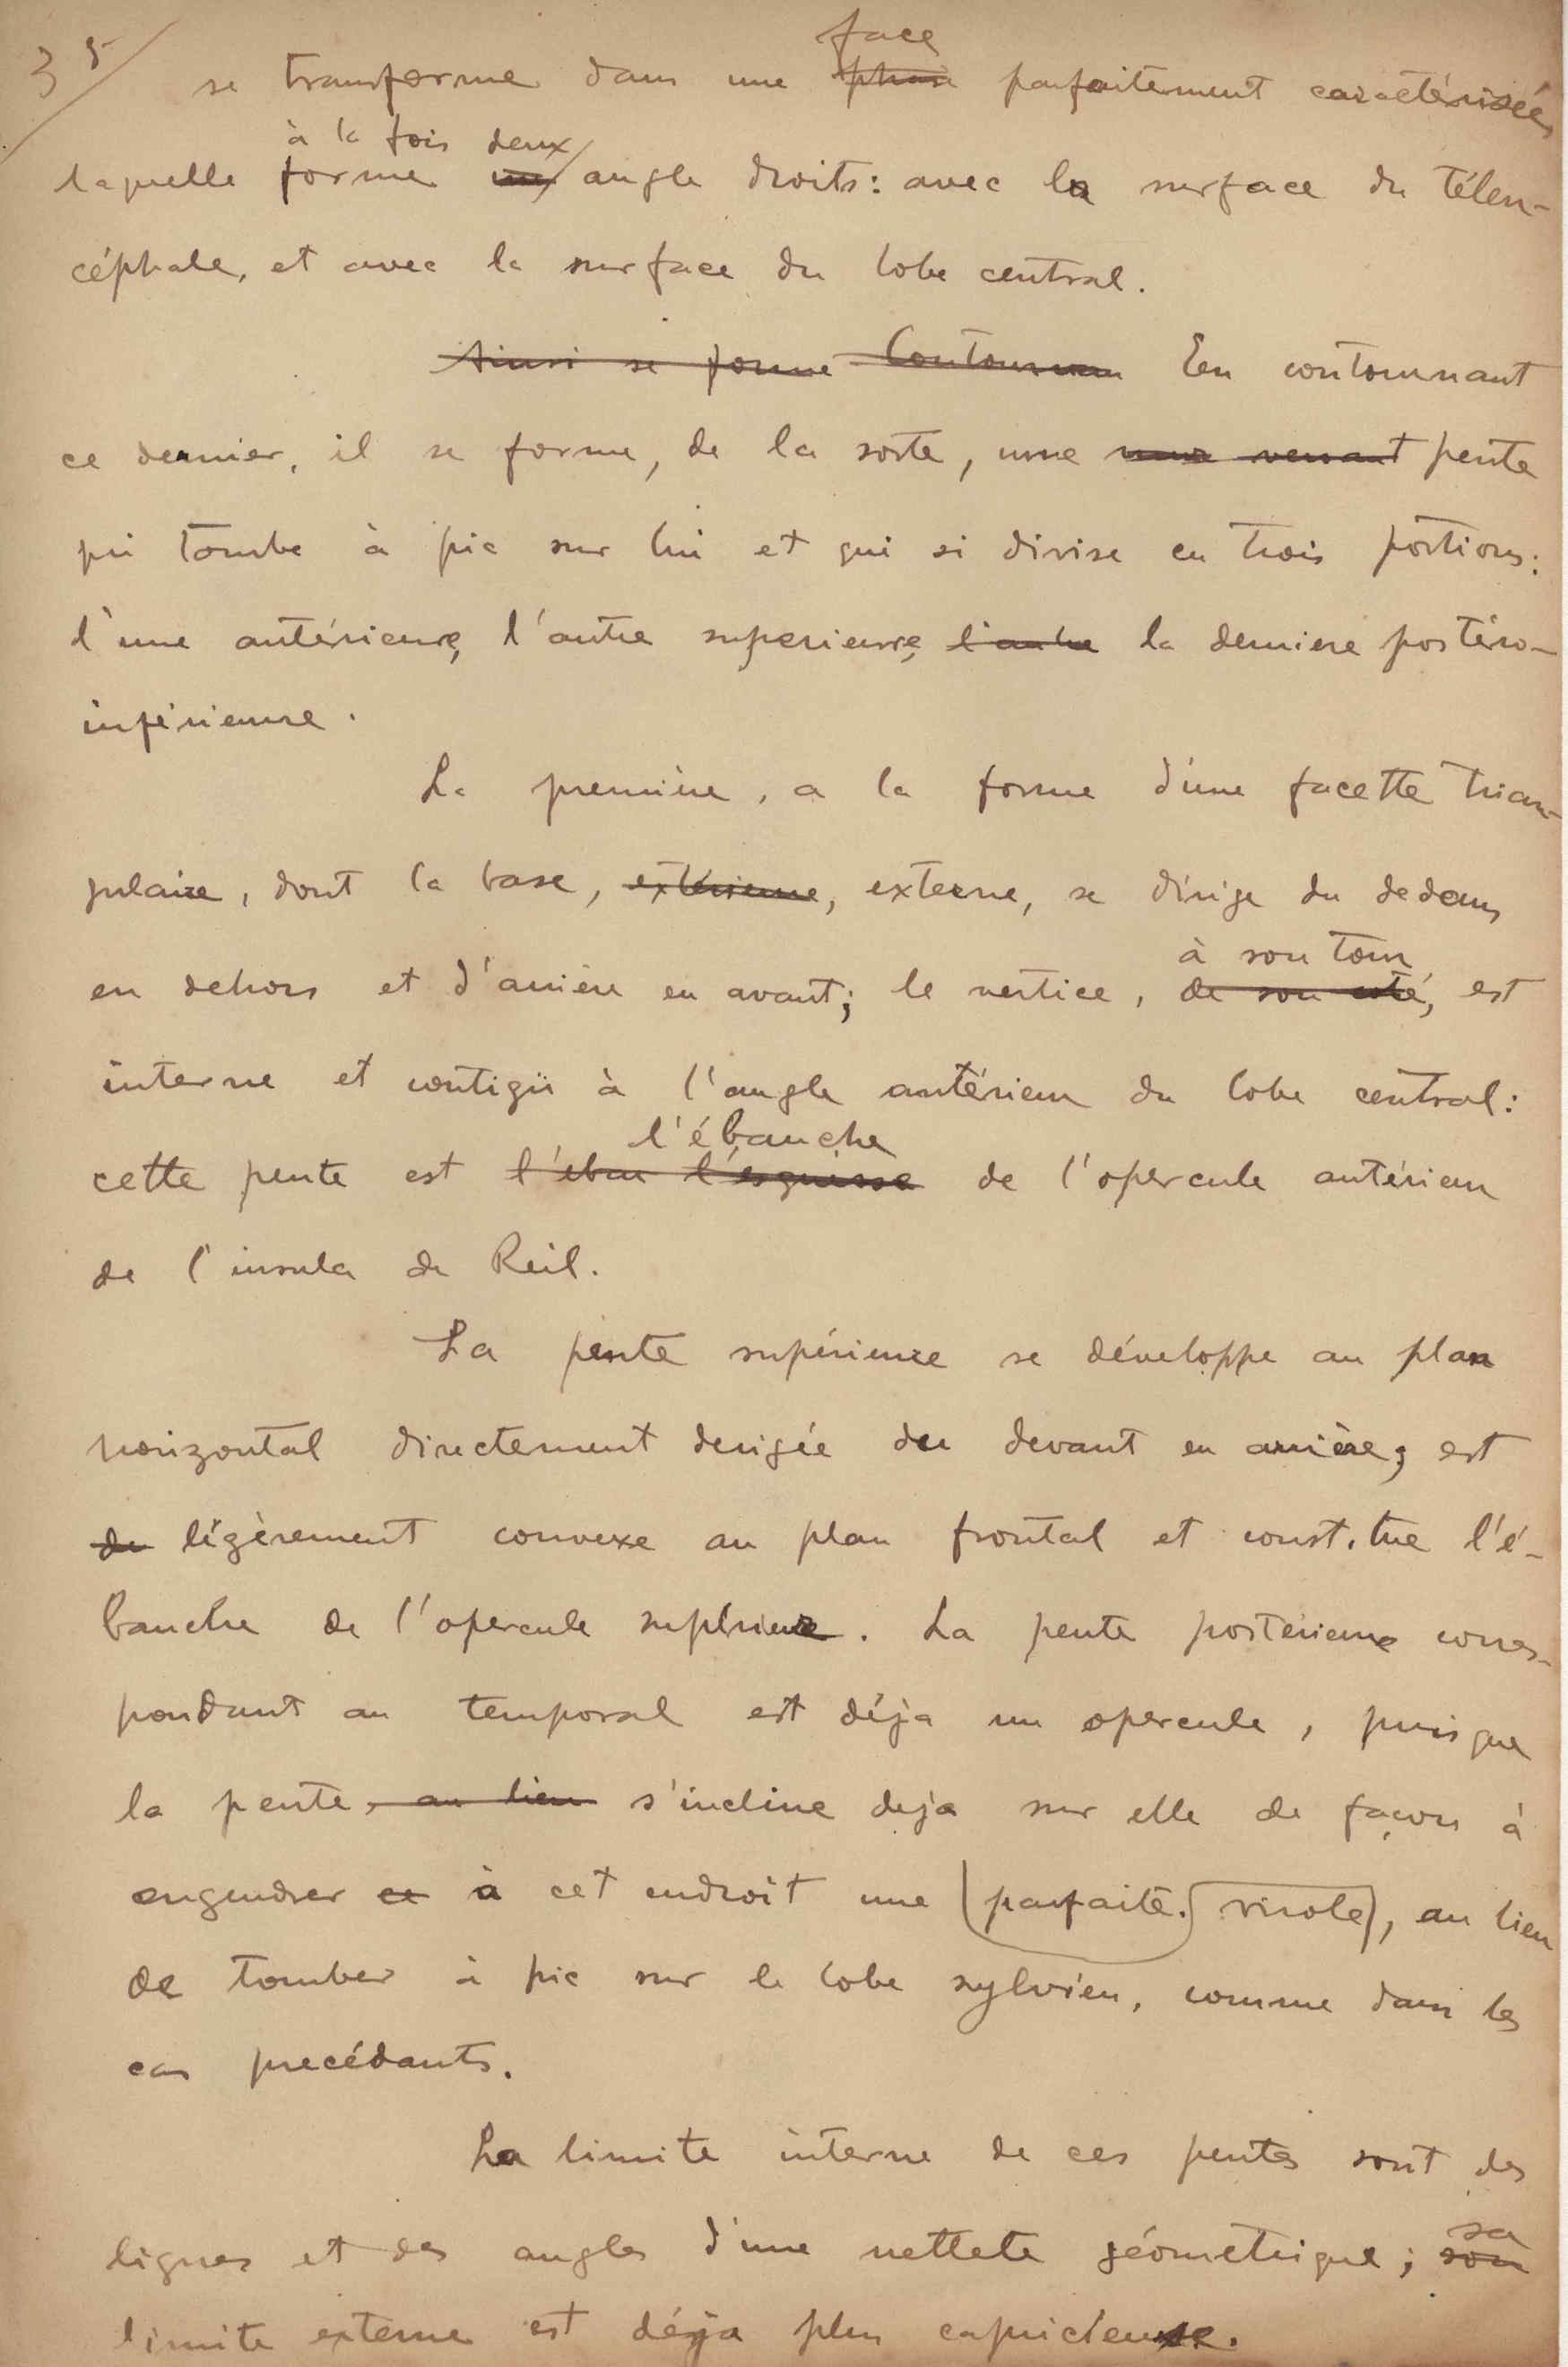 35
face
se transforme dans une phase parfaitement caractérisée,
à la fois deux
laquelle forme un angle droits: avec la surface du télen-
céphale, et avec la surface du lobe central.
Ainsi se forme Contournan En contournant
ce dernier, il se forme, de la sorte, une versant pente
qui tombe à pic sur lui et qui si divise en trois portions:
l'une antérieure, l'autre superieure, l'autre la derniere postéro-
inférieure.
La première, a la forme d'une facette trian-
gulaire, dont la base, extérieure, externe, se dirige du dedans
à son tour
en dehors et d'arrière en avant; le vertice, de son coté, est
interne et contigü à l'angle antérieur du lobe central:
l'ébauche
cette pente est l'ébau l'esquisse de l'opercule antérieur
de l'insula de Reil.
La pente supérieure se développe au plan
horizontal directement derigée du devant en arrière; est
de légèrement convexe au plan frontal et constitue l'é-
bauche de l'opercule supérieur. La pente postérieure corres-
pondant au temporal est déja un opercule, puisque
la pente, au lieu s'incline deja sur elle de façon à
engendrer ce à cet endroit une (parfaite.) virole), au lieu
de tomber à pic sur le lobe sylvien, comme dans les
cas precédants.
La limite interne de ces pentes sont des
sa
lignes et des angles d'une nettete géometrique; son
limite externe est déja plus capricieuse.